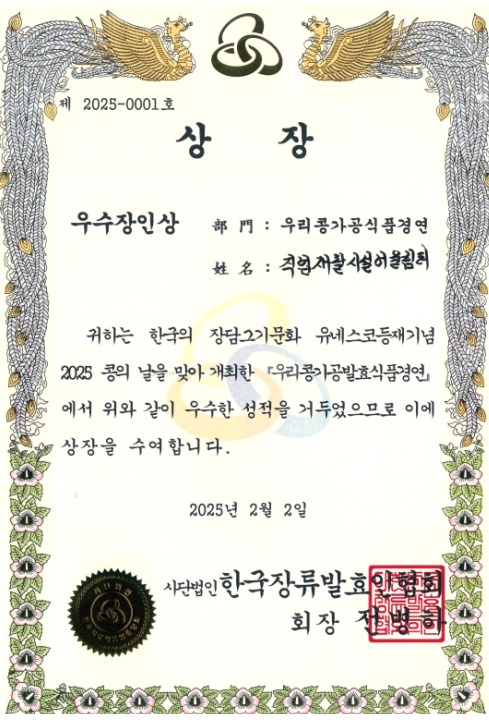 제 2025-0001호
상 장
우수장인상
部門 : 우리콩가공식품경연
姓名 : 직업재활시설어울림터
귀하는 한국의 장담그기문화 유네스코등재기념
2025 콩의 날을 맞아 개최한 『우리콩가공발효식품경연』
에서 위와 같이 우수한 성적을 거두었으므로 이에
상장을 수여합니다.
2025년 2월 2일
사단법인 한국장류발효인협회
회장 전병하